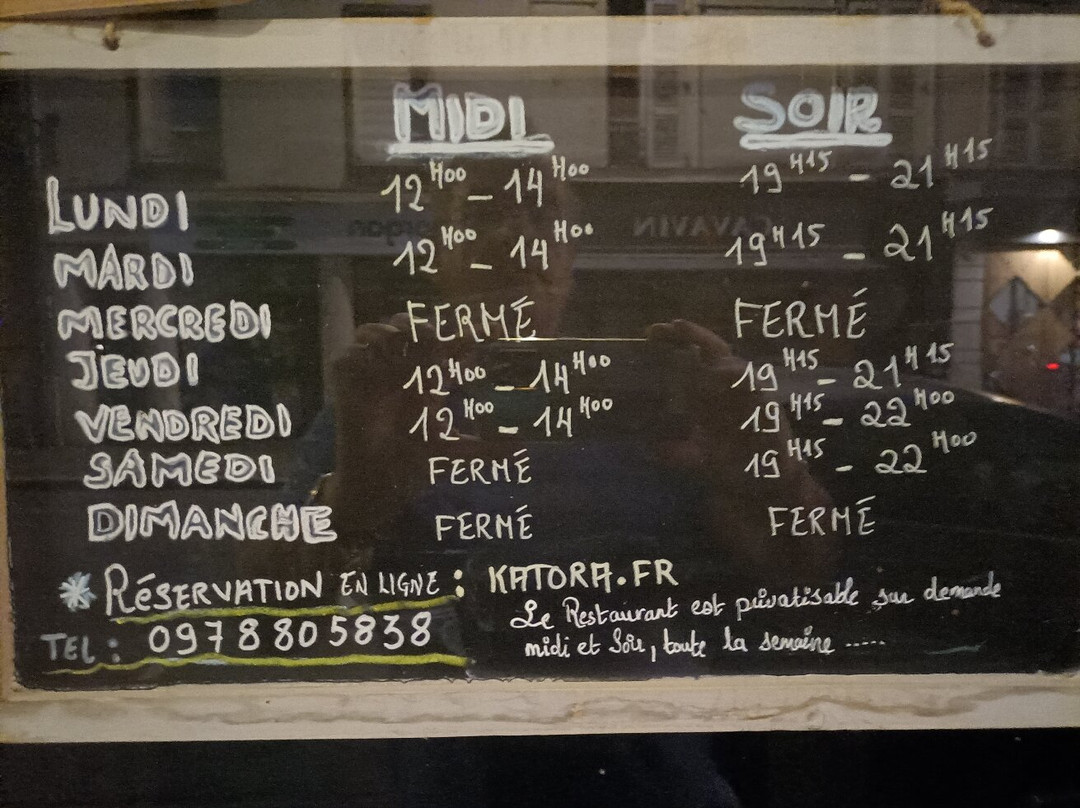 MIDI SOIR
LUNDI 12H00 - 14H00 19H15 - 21H15
MARDI 12H00 - 14H00 19H15 - 21H15
MERCREDI FERMÉ FERMÉ
JEUDI 12H00 - 14H00 19H15 - 21H15
VENDREDI 12H00 - 14H00 19H15 - 22H00
SAMEDI FERMÉ 19H15 - 22H00
DIMANCHE FERMÉ FERMÉ
* RÉSERVATION EN LIGNE : KATORA.FR
TEL : 0978805838
Le Restaurant est privatisable sur demande
midi et Soir, toute la semaine .....
CAVAVIN